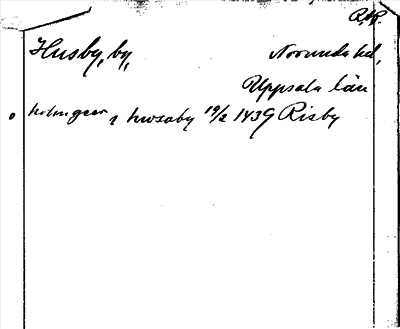 R.R.
Husby, by,
Norunda hd,
Uppsala län
holmger i hwsaby 19/2 1439 Risby